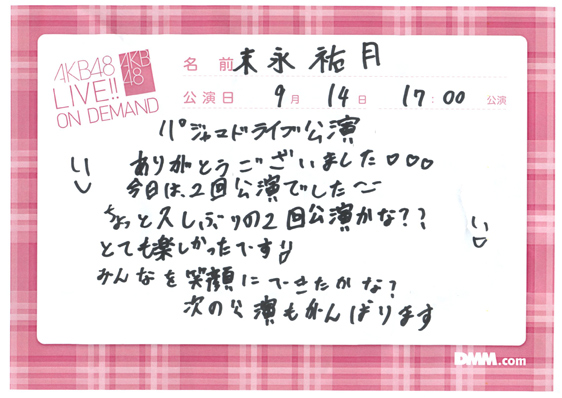 AKB48
LIVE!!
ON DEMAND
AKB
48
名 前 末永祐月
公演日 9月 14日 17:00 公演
パジャマドライブ公演
ありがとうございました♡♡♡
今日は、2回公演でした〜
ちょっと久しぶりの2回公演かな??
とても楽しかったです!
みんなを笑顔にできたかな?
次の公演もがんばります
DMM.com